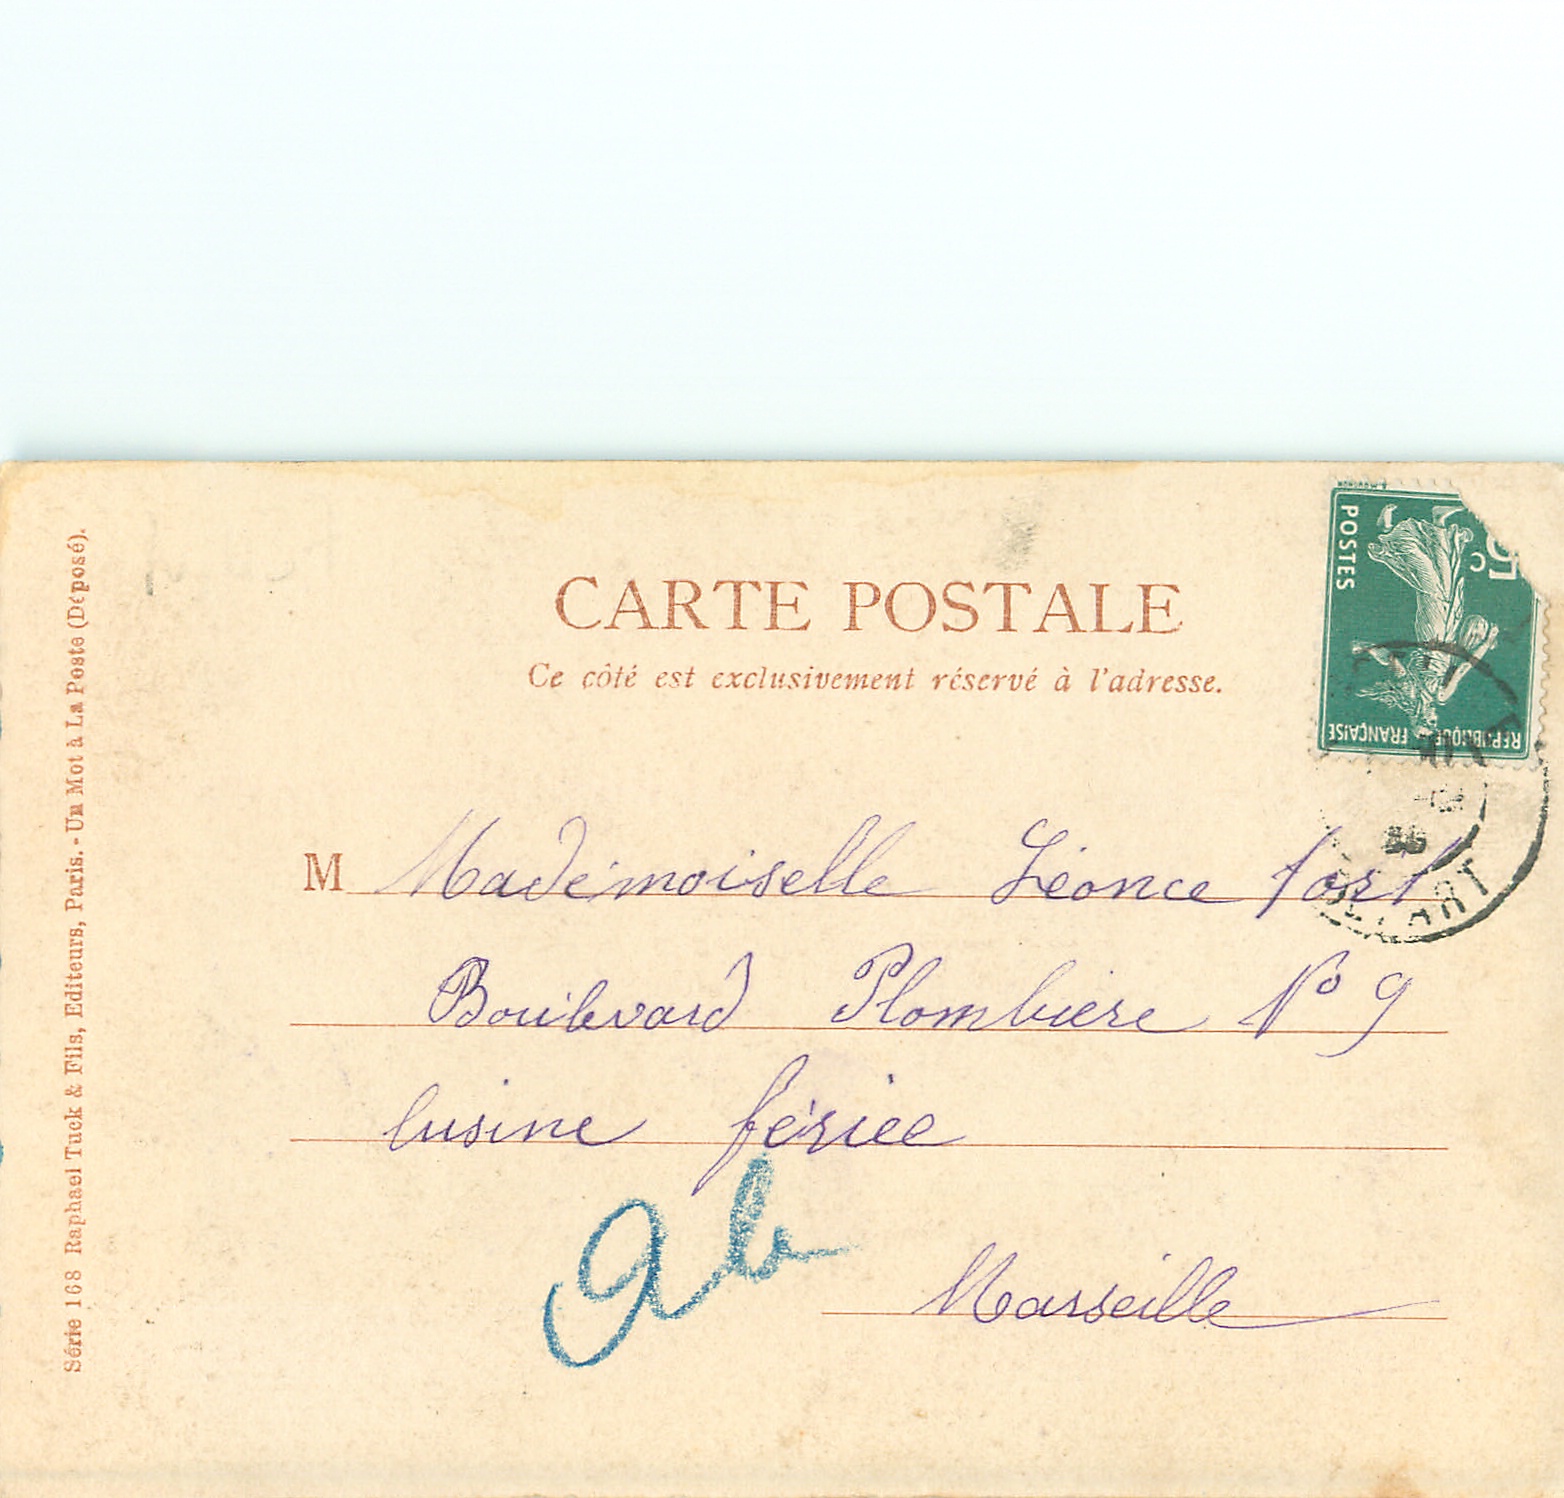 CARTE POSTALE
Ce côté est exclusivement réservé à l'adresse.
M Mademoiselle Léonce fort
Boulevard Plombiere No 9
lusine fériee
Marseille
Série 168 Raphael Tuck & Fils, Editeurs, Paris. - Un Mot à La Poste (Déposé).
POSTES
5c
REPUBLIQUE FRANÇAISE